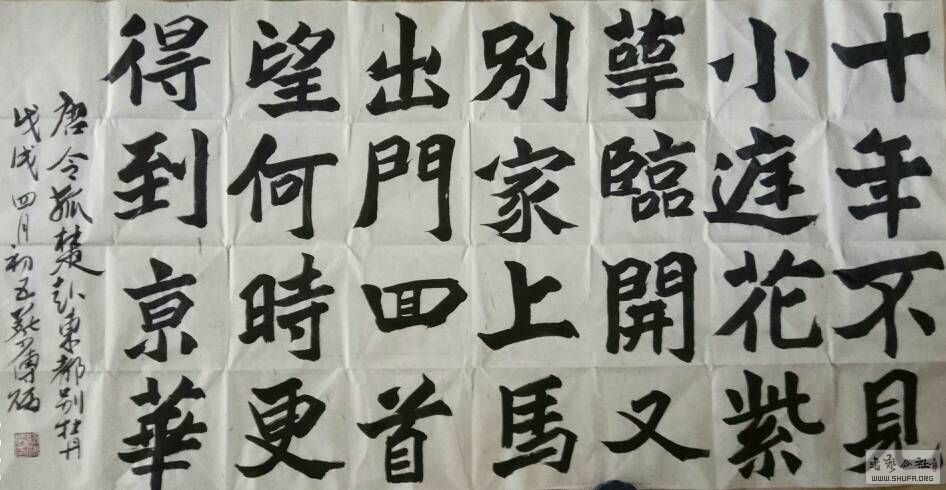 十年不見
小庭花紫
萼臨開又
別家上馬
出門回首
望何時更
得到亰華
唐令狐楚赴東都別牡丹
戊戌四月初五
公社
WWW.SHUFA.ORG